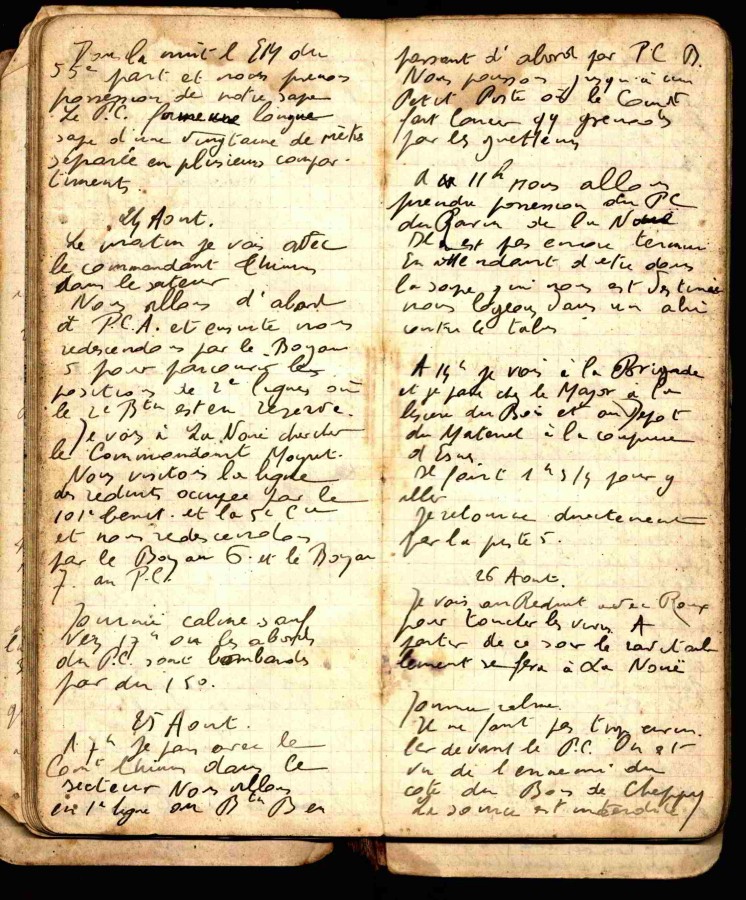 Dans la nuit l'EM du
55e part et nous prenons
possession de notre sape
Le P.C. forme une longue
sape d'une vingtaine de mètres
séparée en plusieurs compar-
timents.
24 Aout.
Le matin je vais avec
le commandant
dans le secteur
Nous allons d'abord
à P.C.A. et ensuite nous
redescendons par le Boyau
5 pour parcourir les
positions de 2e lignes où
le 2e Btn est en reserve.
Je vais à La Noue chercher
le Commandant
Nous visitons la ligne
des reduits occupée par le
101e et la 5e Cie
et nous redescendons
par le Boyau 6. et le Boyau
7. au P.C.
Journée calme sauf
vers 17h ou les abords
du P.C. sont bombardés
par du 150.
25 Aout.
A 7h je pars avec le
Comt dans le
secteur Nous allons
en 1e ligne au Btn B en
passant d'abord par P.C B.
Nous poussons jusqu'à un
Petit Poste où le Comdt
fait lancer qq grenades
par les guetteurs
A 11h nous allons
prendre possession du PC
du Ravin de la Noue
Il n'est pas encore terminé
En attendant d'etre dans
la sape qui nous est destinée
nous logeons dans un abri
contre le talus
A 14h je vais à la Brigade
et je passe chez le Major à la
lisiere du Bois et au Depot
du Materiel à la
d'Esnes
Il faut 1h 3/4 pour y
aller
Je retourne directement
par la piste 5.
26 Aout.
Je vais au Reduit avec Roux
pour toucher les vivres A
partir de ce soir le ravitail-
lement se fera à La Noue
Journée calme.
Il ne faut pas trop circu-
ler devant le P.C. On est
vu de l'ennemi du
coté du Bois de Cheppy
La source est interdite